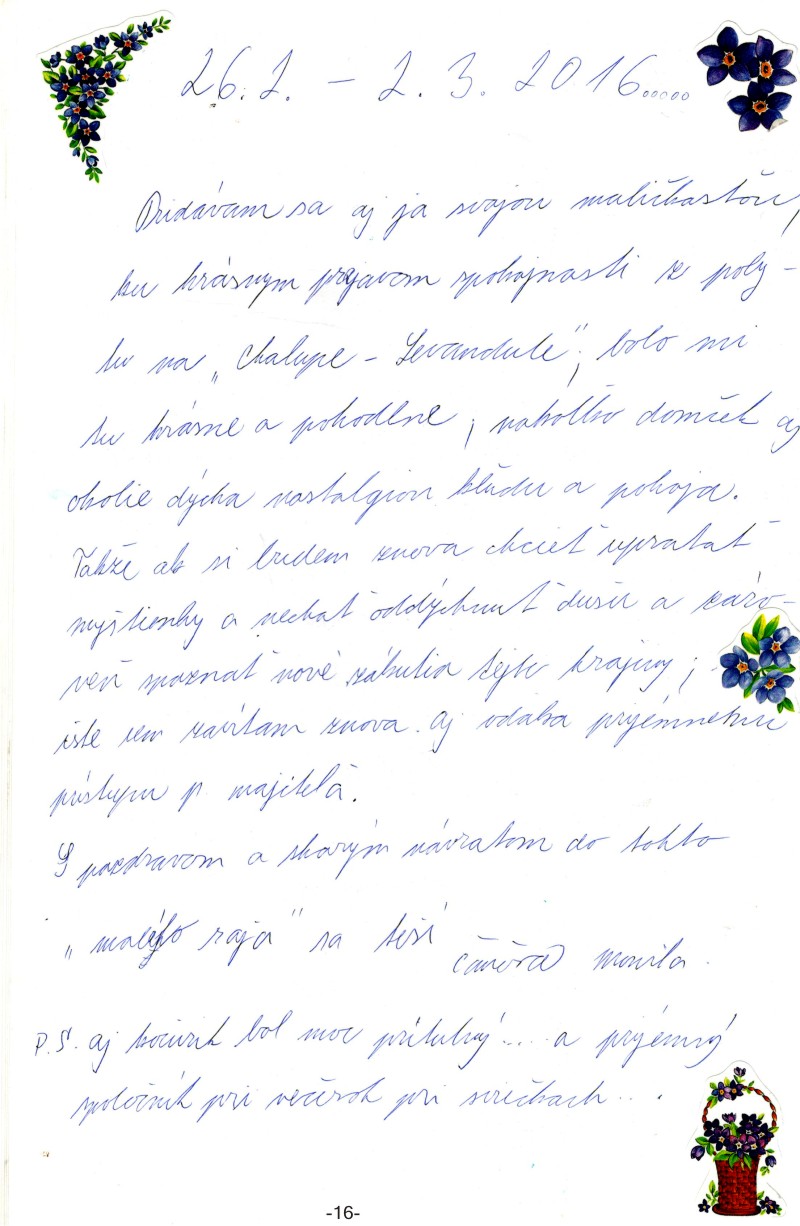 26.2. – 2.3. 2016.....
Pridávam sa aj ja svojou maličkosťou,
ku krásnym prejavom spokojnosti z poby-
tu na „Chalupe – Levandule“; bolo mi
tu krásne a pohodlne, nakoľko domček aj
okolie dýcha nostalgiou kľudu a pokoja.
Takže ak si budem znova chcieť upratať
myšlienky a nechať oddýchnuť dušu a záro-
veň spoznať nové zákutia tejto krajiny; –
iste sem zavítam znova. aj vďaka príjemnému
prístupu p. majiteľa.
S pozdravom a skorým návratom do tohto
„malého raja“ sa teší
Monika.
P.S. aj kocúrik bol moc prítulný.... a príjemný
spoločník pri večerok pri sviečkach....
-16-